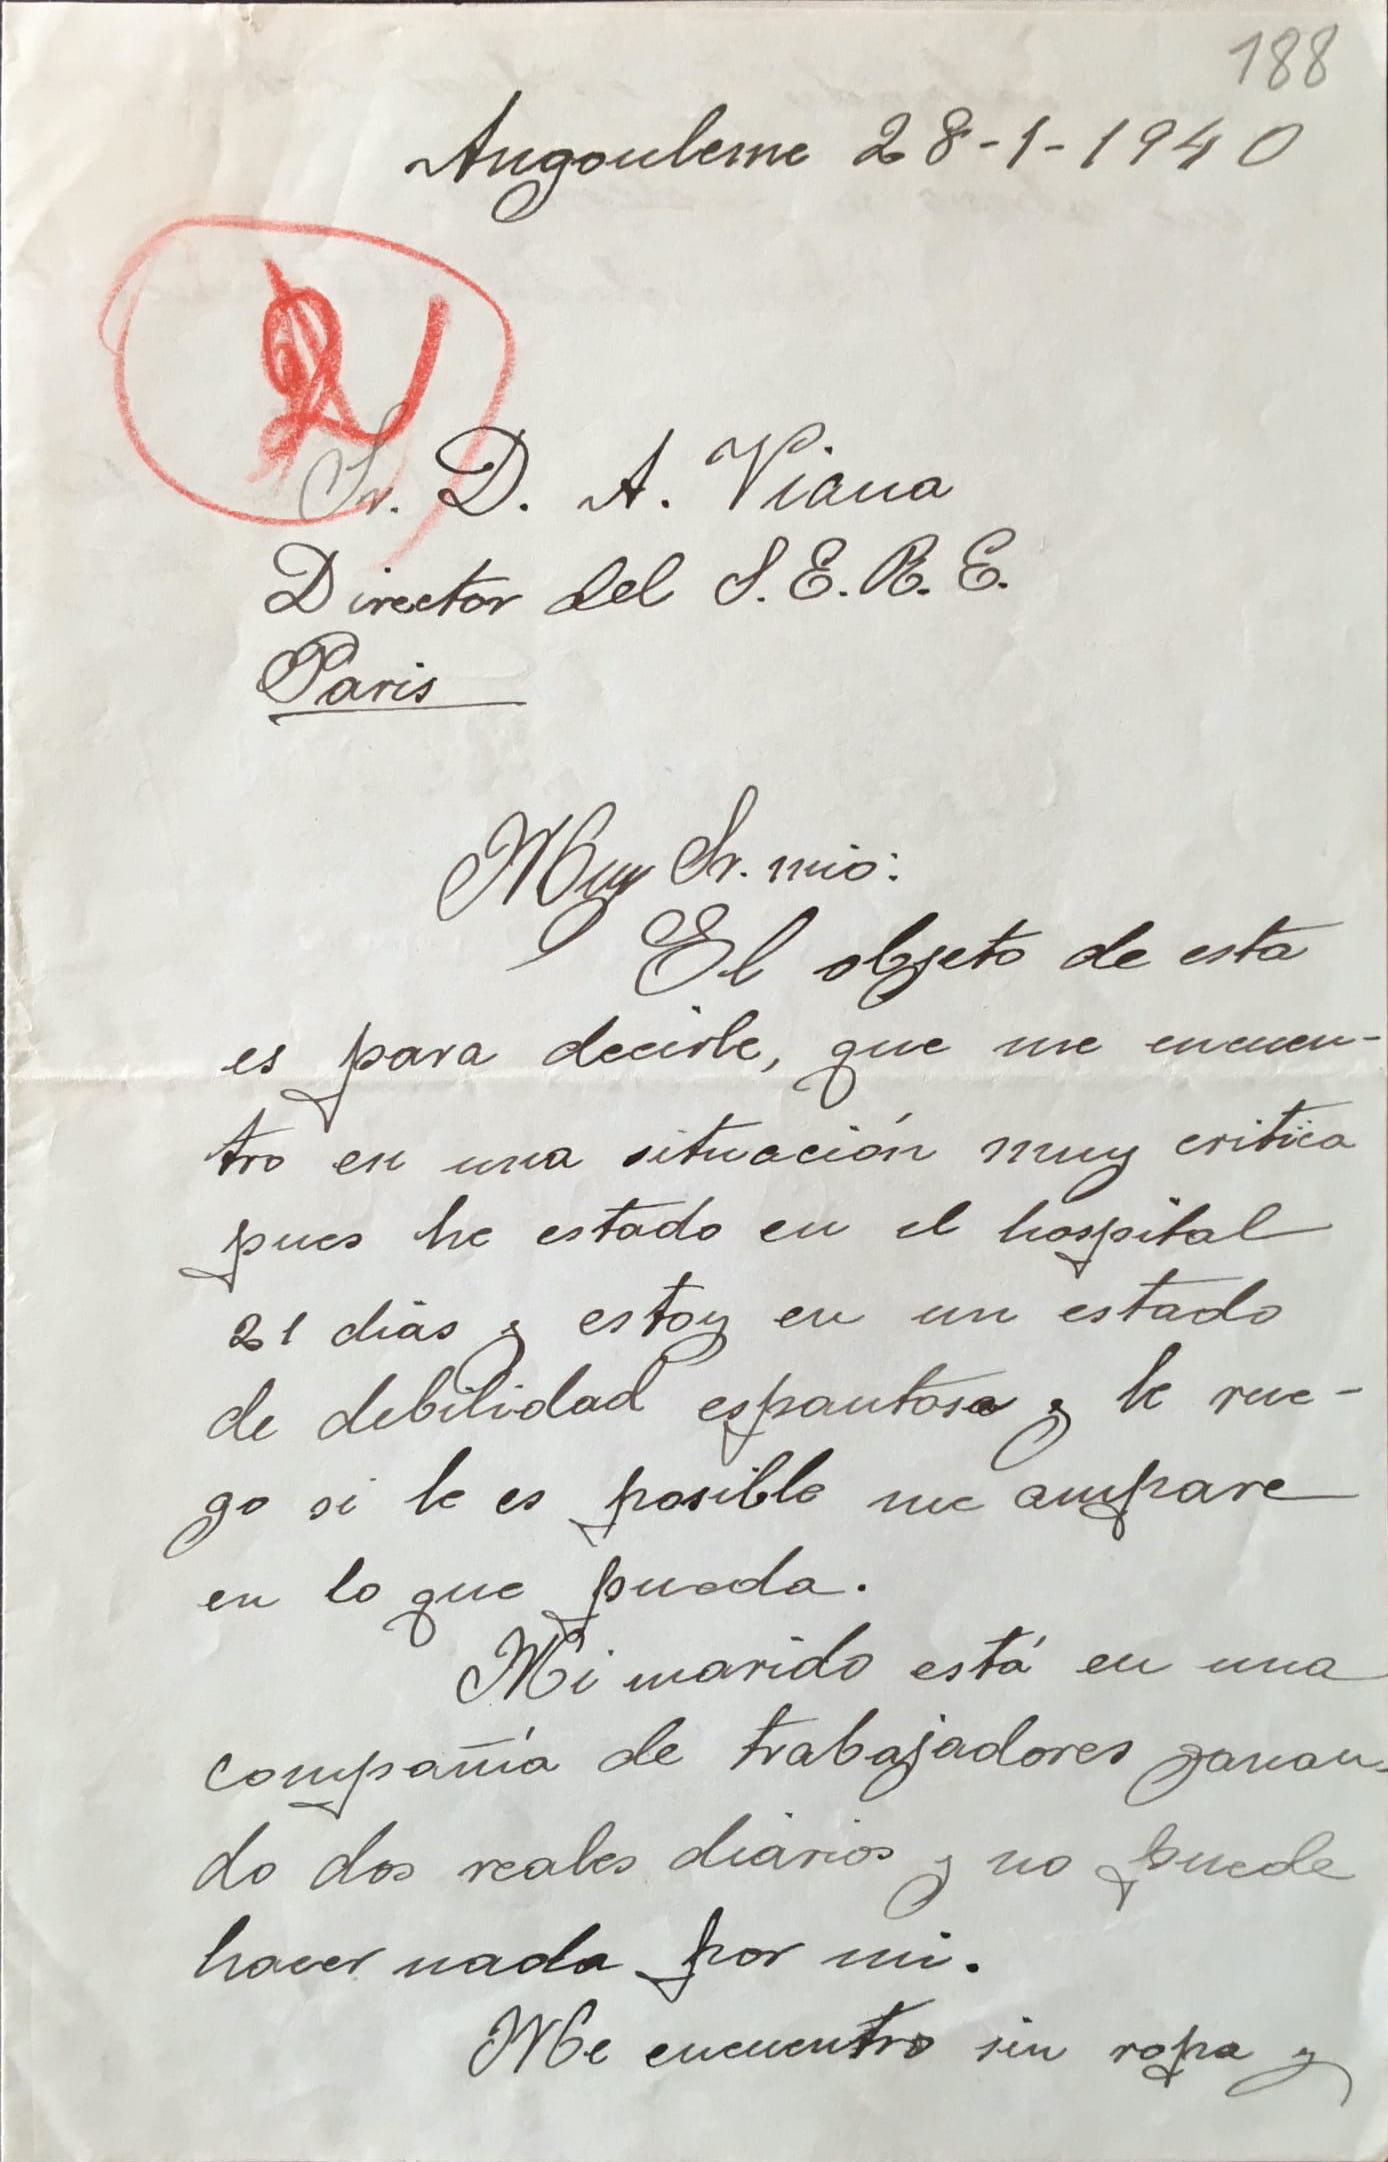 188
Angouleme 28-1-1940
Sr. D. A. Viana
Director del S.E.R.E.
Paris
Muy Sr. mio:
El objeto de esta
es para decirle, que me encuen-
tro en una situación muy critica
pues he estado en el hospital
21 dias y estoy en un estado
de debilidad espantosa y le rue-
go si le es posible me ampare
en lo que pueda.
Mi marido está en una
compañía de trabajadores ganan-
do dos reales diarios y no puede
hacer nada por mi.
Me encuentro sin ropa y